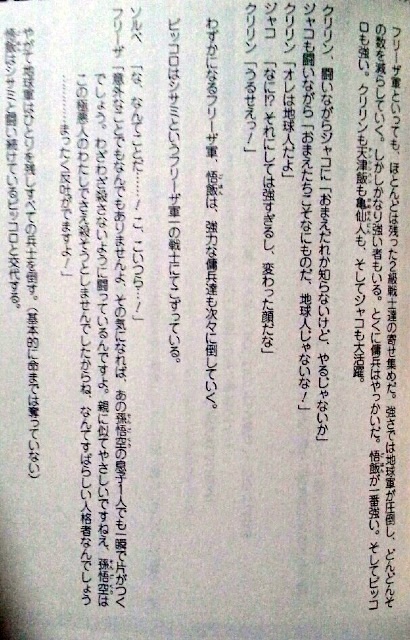 フリーザ軍といっても、ほとんどは残った2級戦士達の寄せ集めだ。強さでは地球軍が圧倒し、どんどんそ
の数を減らしていく。しかしかなり強い者もいる。とくに傭兵はやっかいだ。悟飯が一番強い。そしてピッコ
ロも強い。クリリンも天津飯も亀仙人も、そしてジャコも大活躍。
クリリン 闘いながらジャコに「おまえだれか知らないけど、やるじゃないか」
ジャコも闘いながら「おまえたちこそなにものだ、地球人じゃないな!」
クリリン「オレは地球人だよ」
ジャコ 「なに!? それにしては強すぎるし、変わった顔だな」
クリリン「うるせえっ!」
わずかになるフリーザ軍、悟飯は、強力な傭兵達も次々に倒していく。
ピッコロはシサミというフリーザ軍一の戦士にてこずっている。
ソルベ 「な、なんてことだ……! こ、こいつら…!」
フリーザ「意外なことでもなんでもありませんよ、その気になれば、あの孫悟空の息子1人でも一瞬で片がつく
でしょう。わざわざ殺さないように闘っているんですよ。親に似てやさしいですねえ、孫悟空は
この極悪人のわたしでさえ殺そうとしませんでしたからね、なんてすばらしい人格者なんでしょう
…………まったく反吐がでますよ!」
やがて地球軍はひとりを残しすべての兵士を倒す。(基本的に命までは奪っていない)
悟飯はシサミと闘い続けているピッコロと交代する。